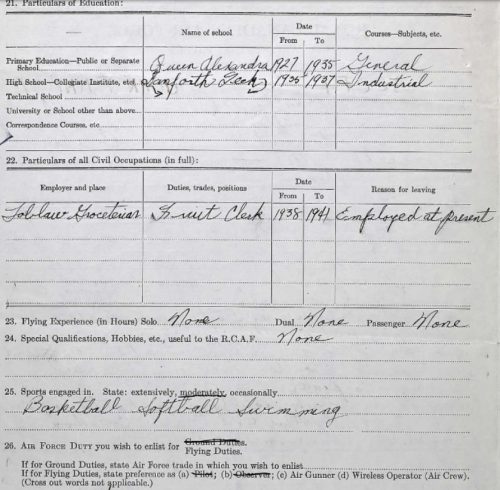 21. Particulars of Education:
Name of school Date Courses—Subjects, etc.
From To
Primary Education—Public or Separate School Queen Alexandra 1927 1935 General
High School—Collegiate Institute, etc. Danforth Tech 1935 1937 Industrial
Technical School
University or School other than above
Correspondence Courses, etc.
22. Particulars of all Civil Occupations (in full):
Employer and place Duties, trades, positions Date Reason for leaving
From To
Loblaw Groceterias Fruit Clerk 1938 1941 Employed at present
23. Flying Experience (in Hours) Solo None Dual None Passenger None
24. Special Qualifications, Hobbies, etc., useful to the R.C.A.F. None
25. Sports engaged in. State: extensively, moderately, occasionally
Basketball Softball Swimming
26. AIR FORCE DUTY you wish to enlist for Ground Duties.
Flying Duties.
If for Ground Duties, state Air Force trade in which you wish to enlist
If for Flying Duties, state preference as (a) Pilot; (b) Observer; (c) Air Gunner (d) Wireless Operator (Air Crew).
(Cross out words not applicable.)